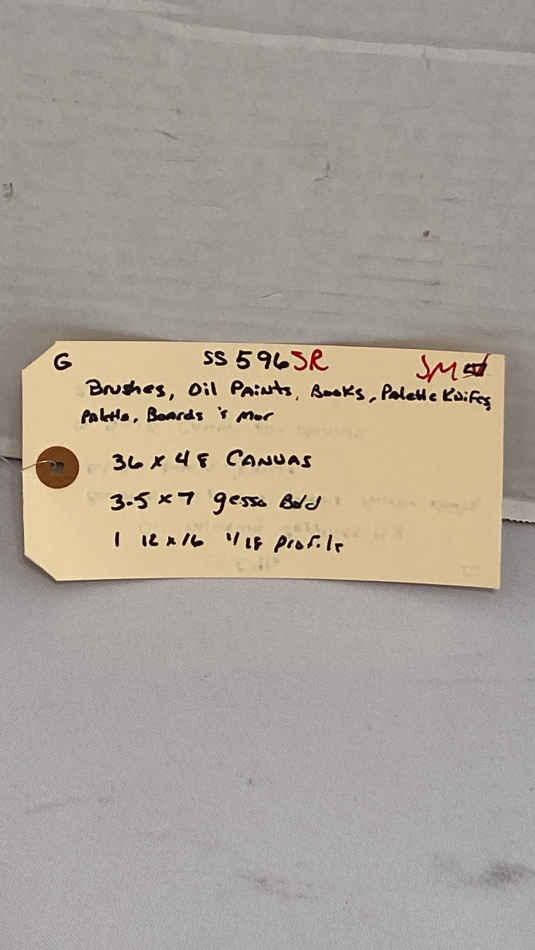 G SS596SR SM
Brushes, Oil Paints, Books, Palette Knifes
Palette, Boards & Mor
36 x 48 CANVAS
3-5x7 gesso Bord
1 12x16 1/18 Profile